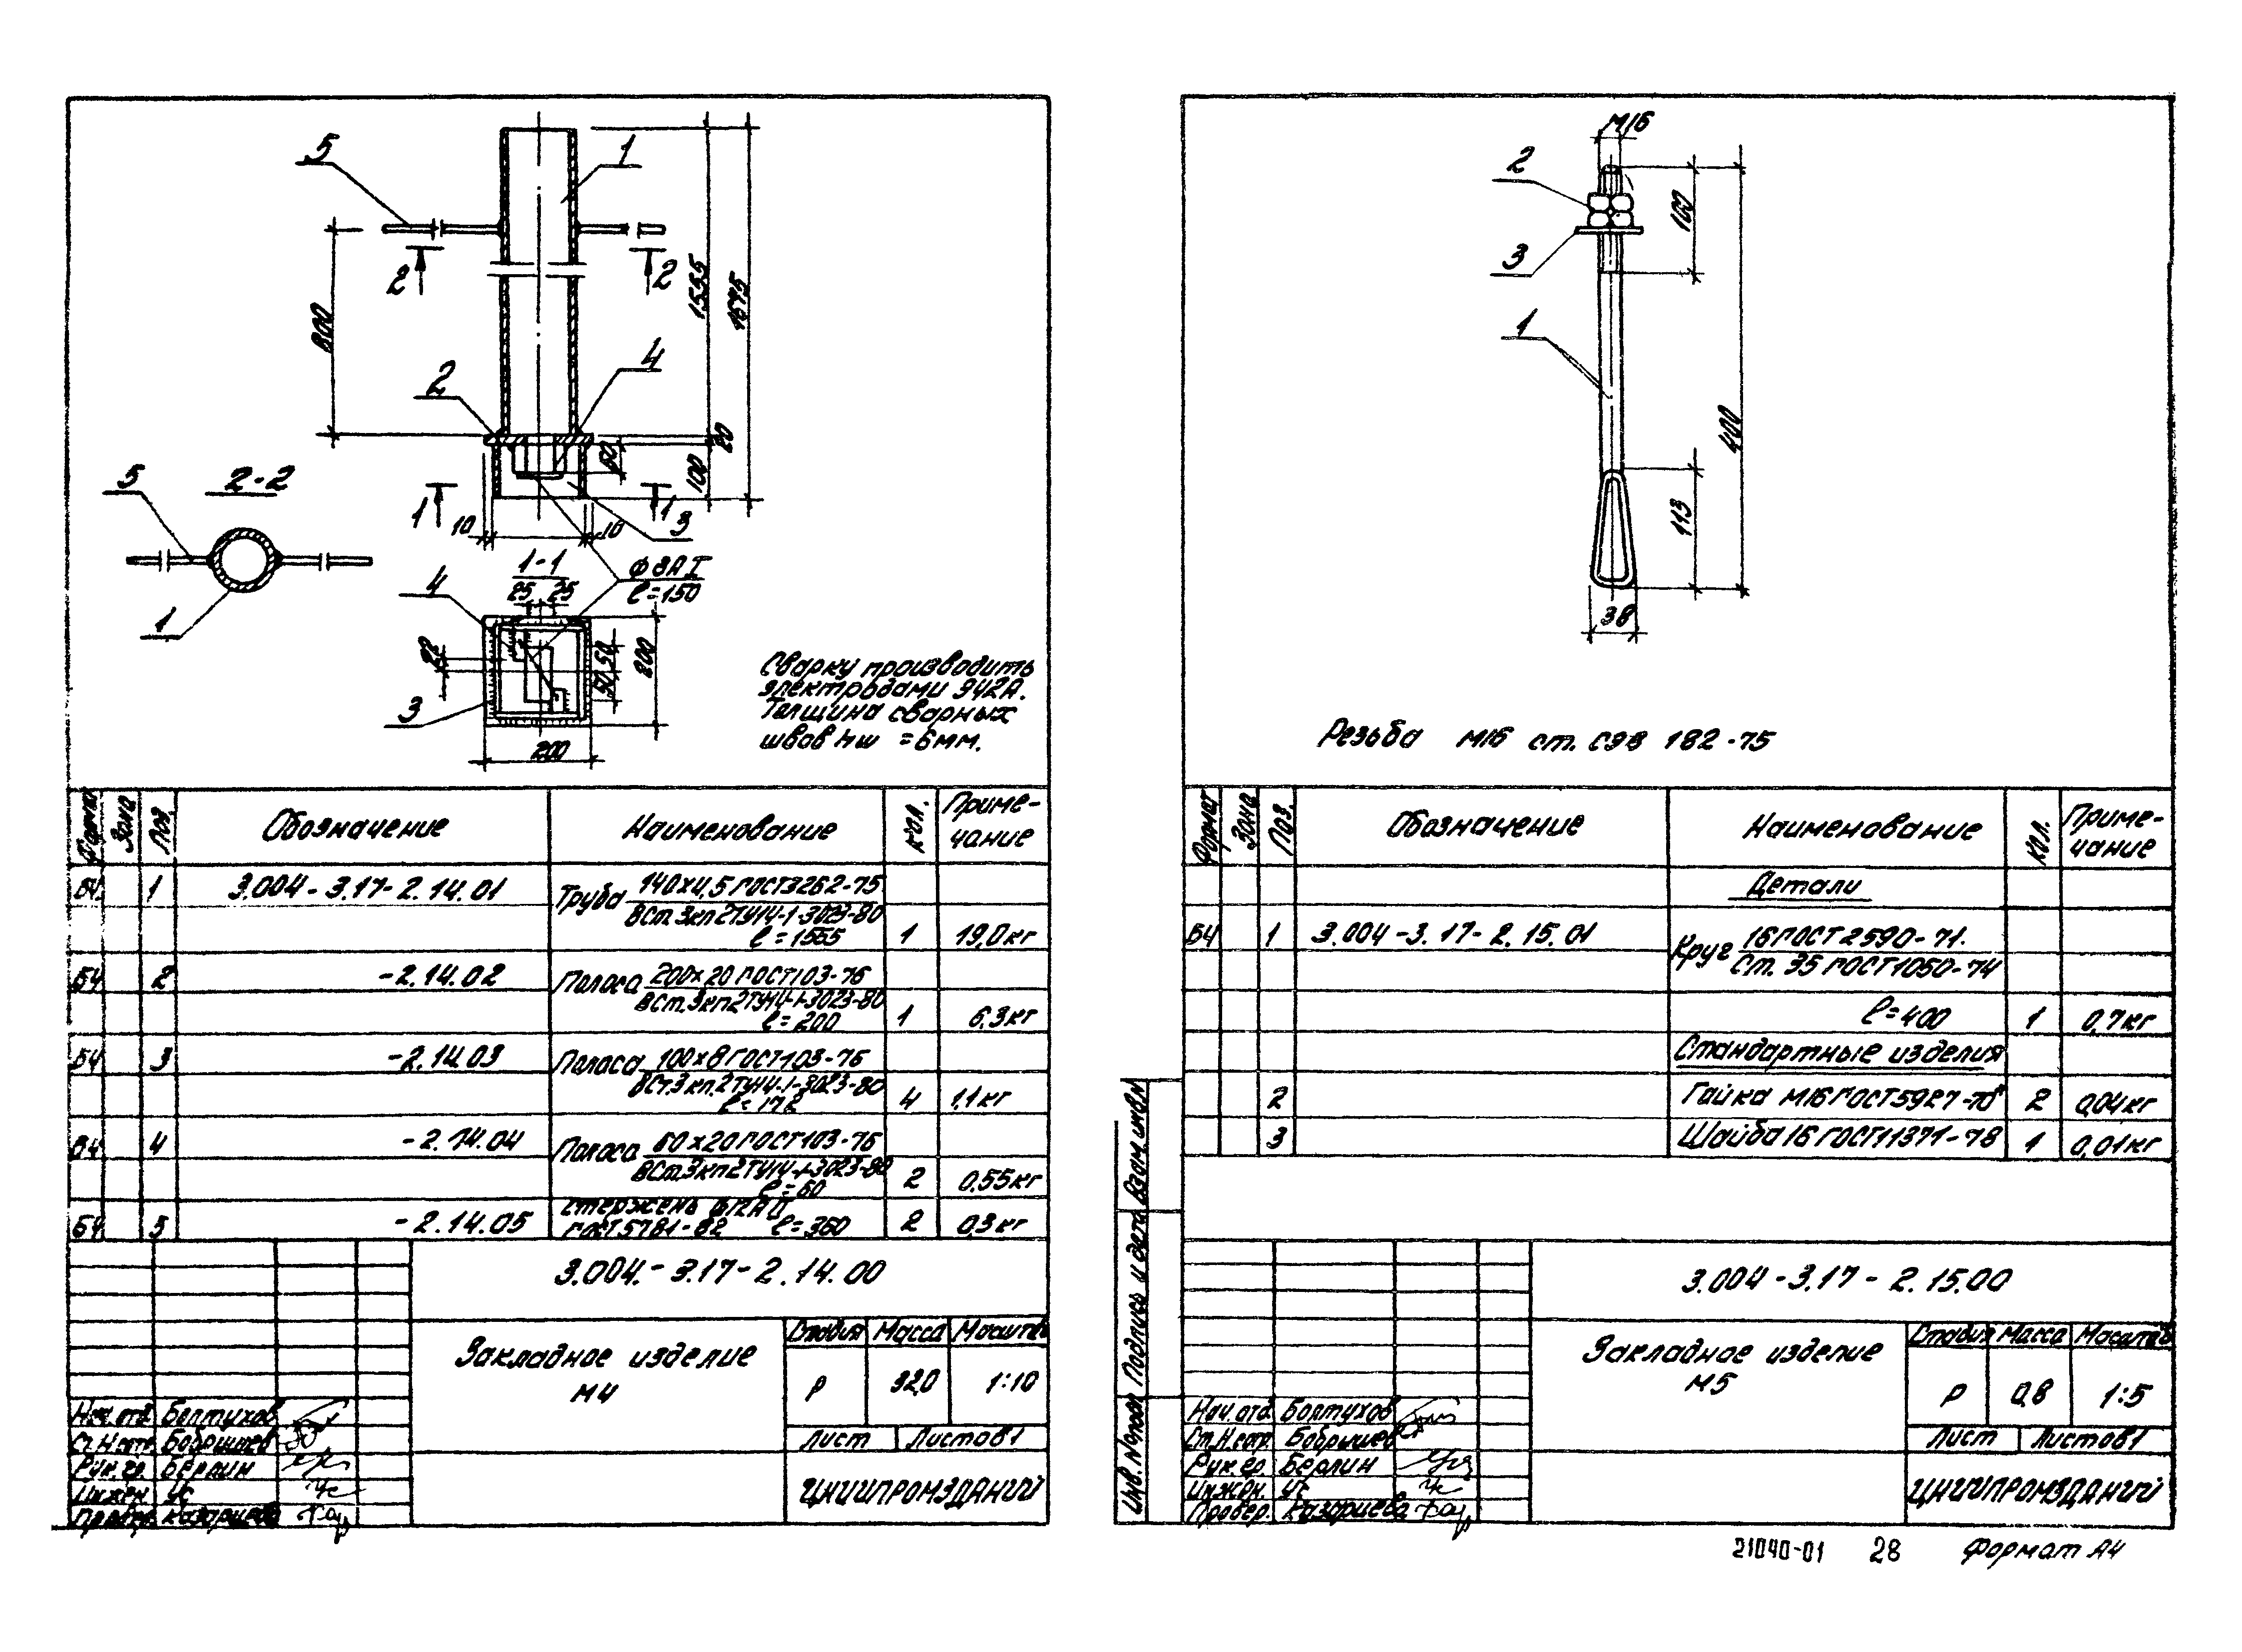 5
1
2
2
800
1555
1675
2
4
20
60
100
5
2-2
1
1
10
10
3
1-1
ф8АI
ℓ=150
25
25
4
1
22
50
50
200
3
200
Сварку производить
электродами Э42А.
Толщина сварных
швов hш =6мм.
Формат
Зона
Поз.
Обозначение
Наименование
Кол.
Приме-
чание
БЧ
1
3.004-3.17-2.14.01
Труба 140х4,5 ГОСТ3262-75
ВСт.3кп2ТУ14-1-3023-80
ℓ=1555
1
19,0кг
БЧ
2
-2.14.02
Полоса 200х20 ГОСТ103-76
ВСт.3кп2ТУ14-1-3023-80
ℓ=200
1
6,3кг
БЧ
3
-2.14.03
Полоса 100х8 ГОСТ103-76
ВСт.3кп.2ТУ14-1-3023-80
ℓ=172
4
1,1кг
БЧ
4
-2.14.04
Полоса 60х20 ГОСТ103-76
ВСт.3кп2ТУ14-1-3023-80
ℓ=60
2
0,55кг
БЧ
5
-2.14.05
стержень ф12АII
ГОСТ5781-82 ℓ=360
2
0,3кг
3.004.-3.17-2.14.00
Закладное изделие
М4
Стадия
Масса
Масштаб
Р
32,0
1:10
Лист
Листов1
ЦНИИПРОМЗДАНИЙ
Нач.отд.
Болтухов
Рук.гр.
Берлин
Инжен.
Ус
Провер.
М16
2
100
3
1
400
113
38
Резьба М16 ст. СЭВ 182-75
Формат
Зона
Поз.
Обозначение
Наименование
Кол.
Приме-
чание
Детали
БЧ
1
3.004-3.17-2.15.01
Круг 16ГОСТ2590-71.
Ст. 35 ГОСТ1050-74
ℓ=400
1
0,7кг
Стандартные изделия
2
Гайка М16ГОСТ5927-70
2
0,04кг
3
Шайба16 ГОСТ11371-78
1
0,01кг
3.004-3.17-2.15.00
Закладное изделие
М5
Стадия
Масса
Масштаб
Р
0,8
1:5
Лист
Листов1
ЦНИИПРОМЗДАНИЙ
Нач.отд.
Болтухов
Рук.гр.
Берлин
Ус
Провер.
Инв. №подл
Подпись и дата
Взам.инв.№
21040-01
28
Формат А4